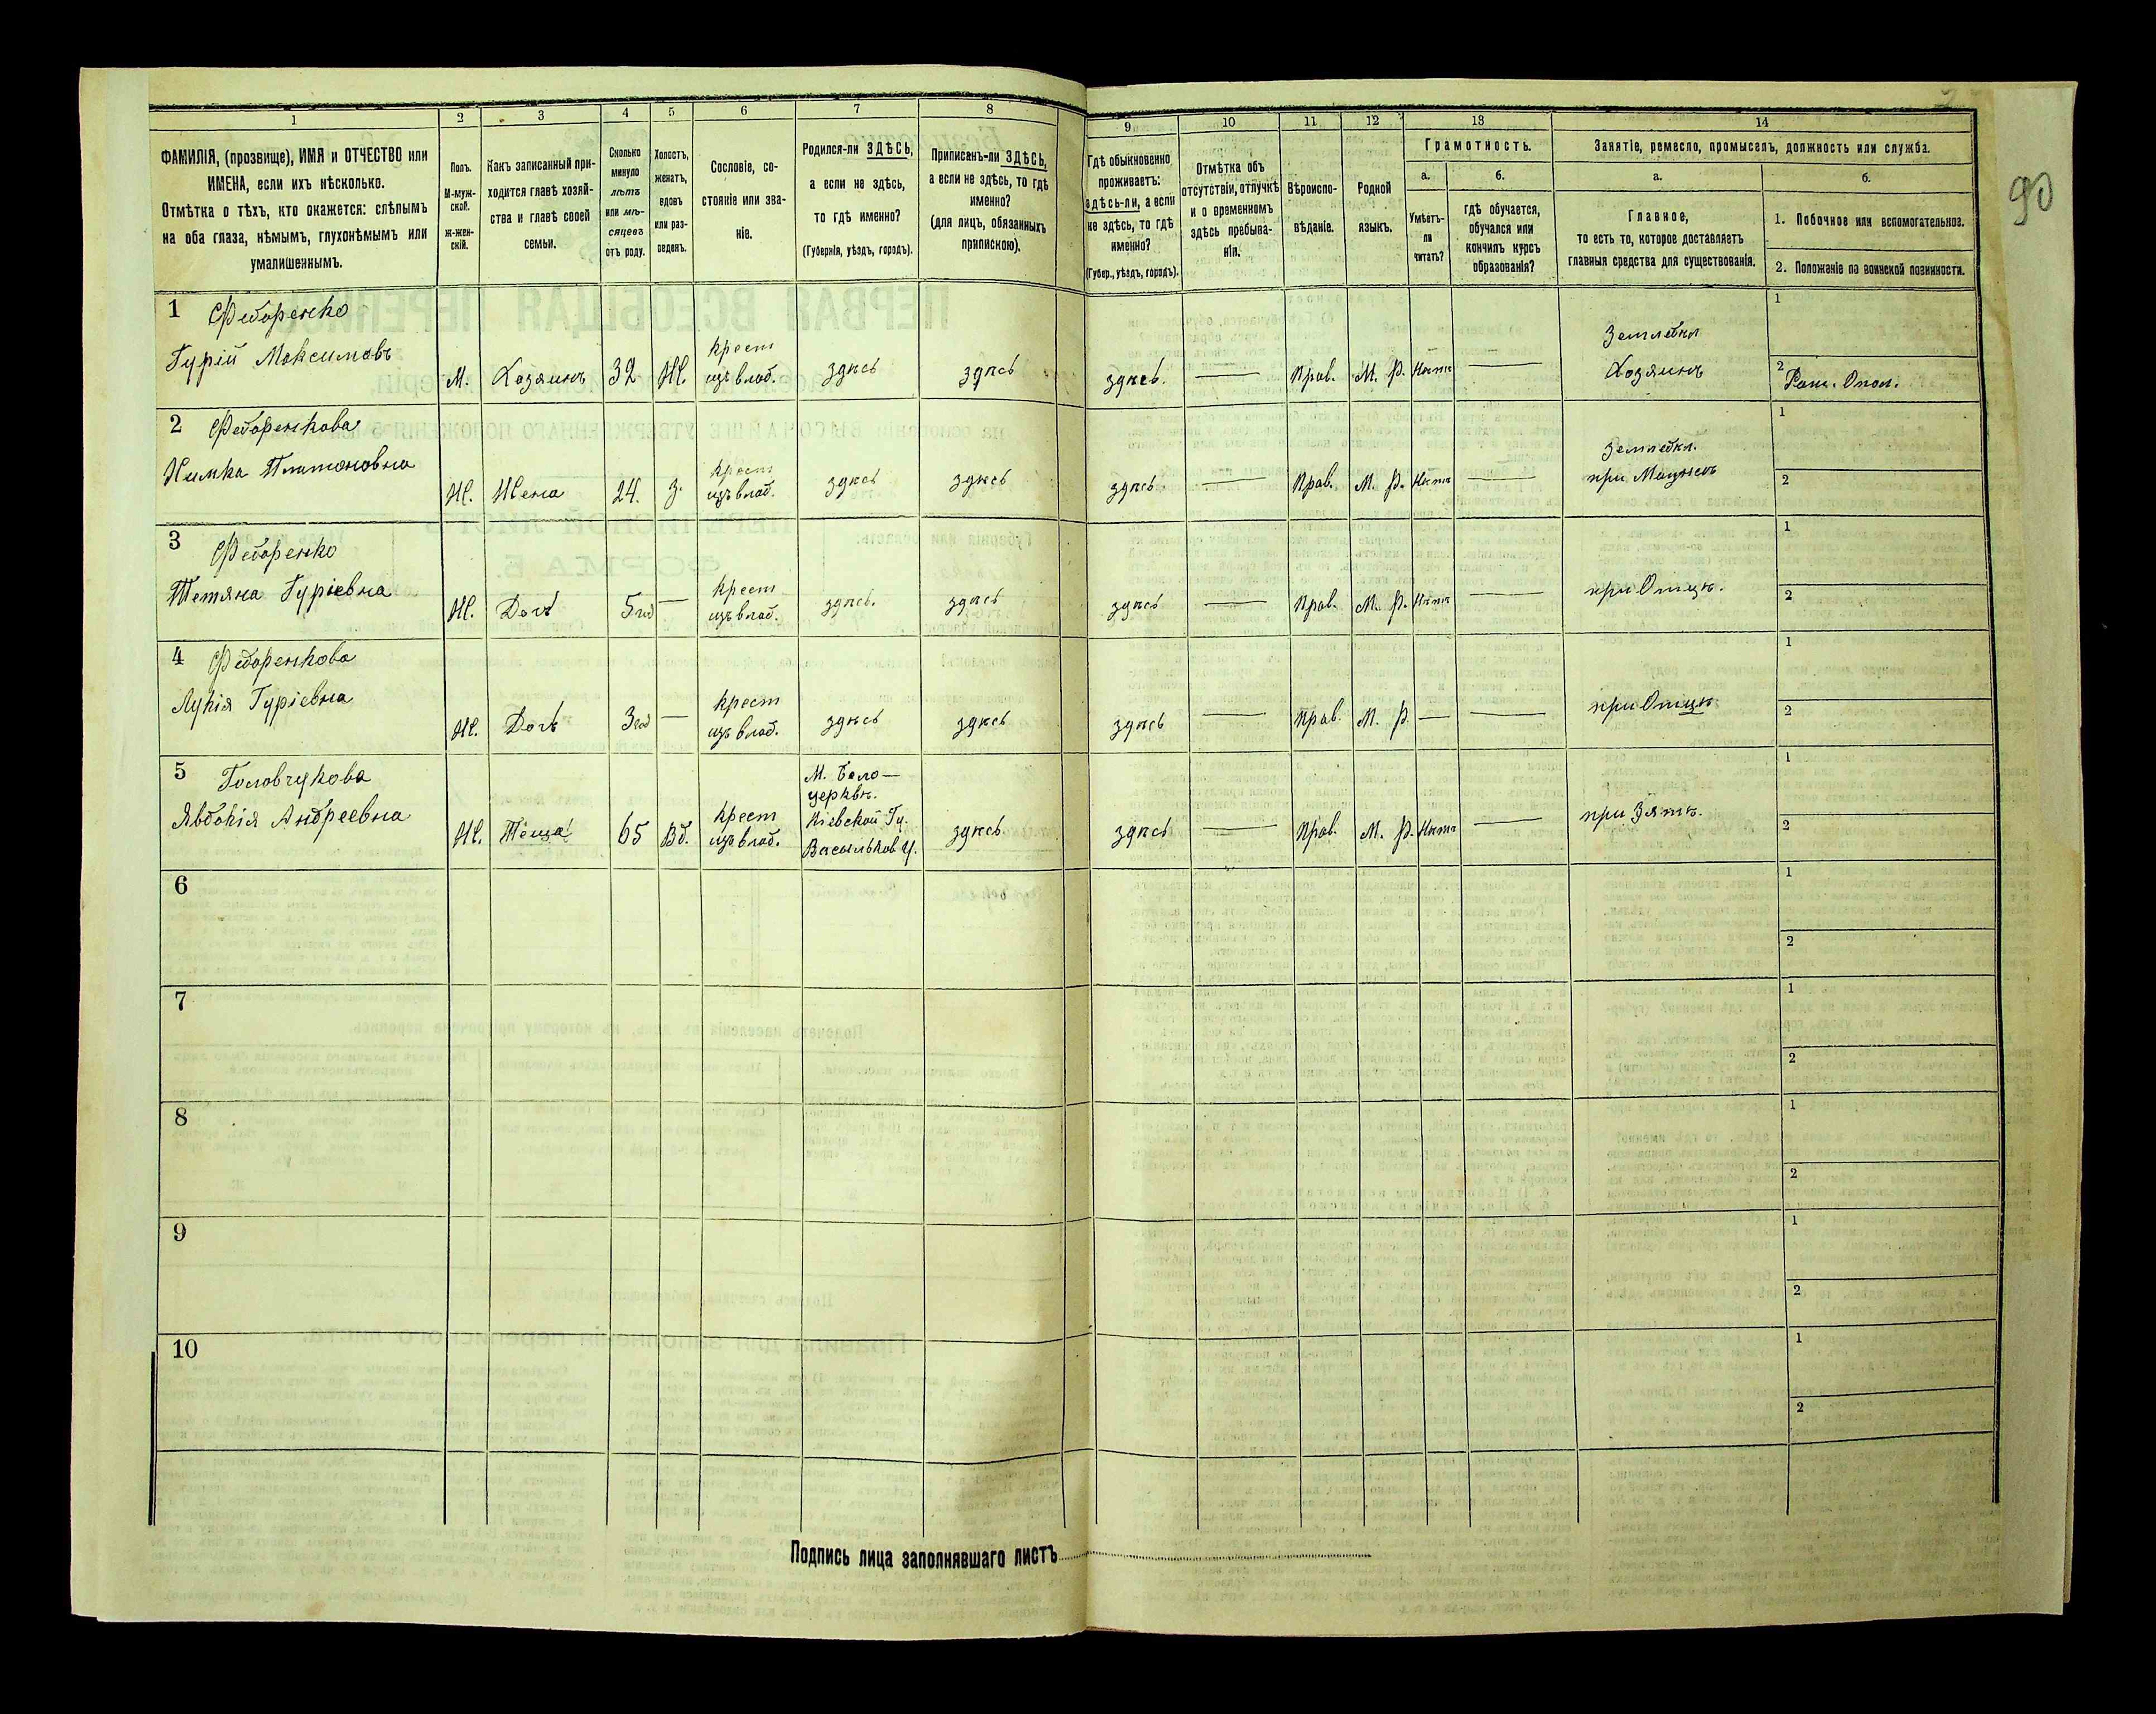 90
1
2
3
4
5
6
7
8
9
10
11
12
13
14
ФАМИЛІЯ, (прозвище), ИМЯ и ОТЧЕСТВО или
ИМЕНА, если ихъ нѣсколько.
Отмѣтка о тѣхъ, кто окажется: слѣпымъ
на оба глаза, нѣмымъ, глухонѣмымъ или
умалишеннымъ.
Полъ.
М-муж-
ской.
Ж-жен-
скій.
Какъ записанный при-
ходится главѣ хозяй-
ства и главѣ своей
семьи.
Сколько
минуло
лѣтъ
или мѣ-
сяцевъ
отъ роду.
Холостъ,
женатъ,
вдовъ
или раз-
веденъ.
Сословіе, со-
стояніе или зва-
ніе.
Родился-ли ЗДѢСЬ,
а если не здѣсь,
то гдѣ именно?
(Губернія, уѣздъ, городъ).
Приписанъ-ли ЗДѢСЬ,
а если не здѣсь, то гдѣ
именно?
(для лицъ, обязанныхъ
припискою).
Гдѣ обыкновенно
проживаетъ:
здѣсь-ли, а если
не здѣсь, то гдѣ
именно?
(Губер., уѣздъ, городъ).
Отмѣтка объ
отсутствіи, отлучкѣ
и о временномъ
здѣсь пребыва-
ніи.
Вѣроиспо-
вѣданіе.
Родной
языкъ.
Грамотность.
а.
Умѣетъ-
ли
читать?
б.
гдѣ обучается,
обучался или
кончилъ курсъ
образованія?
Занятіе, ремесло, промыселъ, должность или служба.
а.
Главное,
то есть то, которое доставляетъ
главныя средства для существованія.
б.
1. Побочное или вспомогательное.
2. Положеніе по воинской повинности.
1 Федоренко
Гурій Максимовъ
М. Хозяинъ 32 Ж. крест
изъ влад. здѣсь здѣсь здѣсь. — Прав. М. Р. Нѣтъ — Землевл
Хозяинъ
1
2 Ратн. Опол.
2 Федоренкова
Химка Платоновна
Ж. Жена 24. З. крест
изъ влад. здѣсь здѣсь здѣсь — Прав. М. Р. Нѣтъ — Землевл.
при Мужѣ
1
2
3 Федоренко
Тетяна Гуріевна
Ж. Дочь 5 год — крест
изъ влад. здѣсь. здѣсь здѣсь — Прав. М. Р. Нѣтъ — при Отцѣ.
1
2
4 Федоренкова
Лукія Гуріевна
Ж. Дочь 3 год — крест
изъ влад. здѣсь здѣсь здѣсь — Прав. М. Р. — — при Отцѣ
1
2
5 Головчукова
Явдокія Андреевна
Ж. Теща 65 Вд. крест
изъ влад.
М. Бело—
церквѣ.
Кіевской Гу.
Васильков У.
здѣсь здѣсь — Прав. М. Р. Нѣтъ — при Зятѣ.
1
2
6
1
2
7
1
2
8
1
2
9
1
2
10
1
2
Подпись лица заполнявшаго листъ